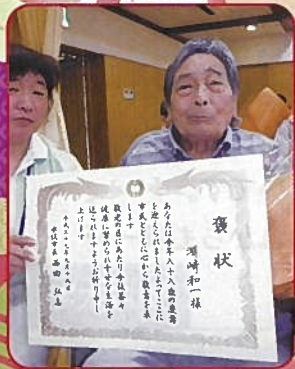 褒状
濱崎和一様
あなたは今年八十八歳の慶寿
を迎えられましたよってここに
市民とともに心から敬意を表
します
敬老の日にあたり今後益々
健康に努められ幸せな生活を
送られますようお祈り申し
上げます
平成二十九年九月十八日
市長